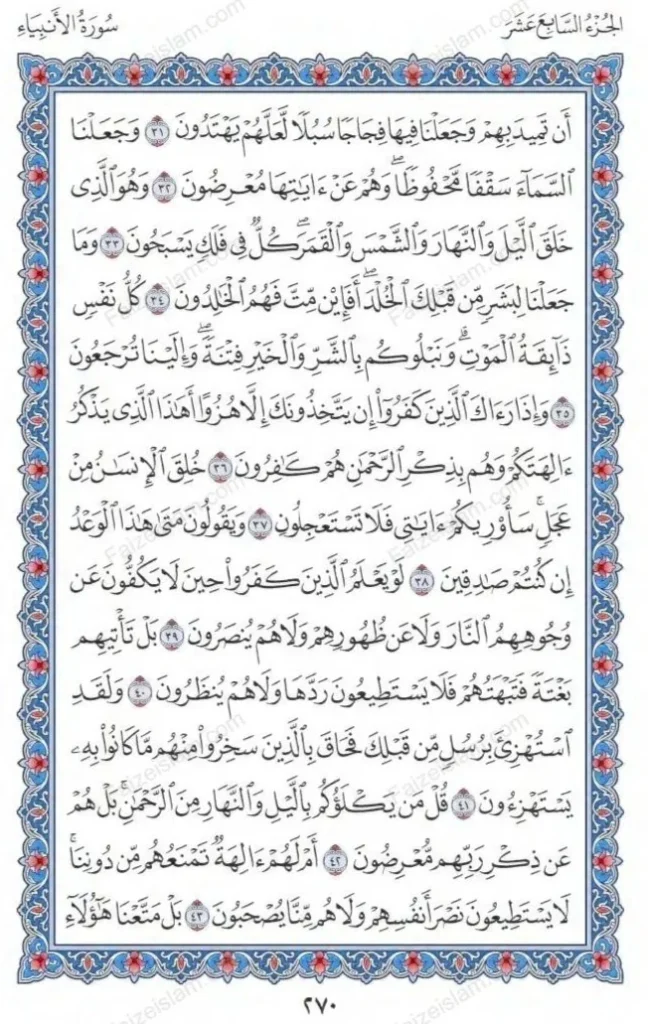 الجُزْءُ السَّابِعَ عَشَرَ
سُورَةُ الأَنْبِيَاءِ
أَن تَمِيدَ بِهِمْ وَجَعَلْنَا فِيهَا فِجَاجًا سُبُلًا لَّعَلَّهُمْ يَهْتَدُونَ ٣١ وَجَعَلْنَا
ٱلسَّمَآءَ سَقْفًا مَّحْفُوظًا ۖ وَهُمْ عَنْ ءَايَٰتِهَا مُعْرِضُونَ ٣٢ وَهُوَ ٱلَّذِى
خَلَقَ ٱلَّيْلَ وَٱلنَّهَارَ وَٱلشَّمْسَ وَٱلْقَمَرَ ۖ كُلٌّ فِى فَلَكٍ يَسْبَحُونَ ٣٣ وَمَا
جَعَلْنَا لِبَشَرٍ مِّن قَبْلِكَ ٱلْخُلْدَ ۖ أَفَإِي۟ن مِّتَّ فَهُمُ ٱلْخَٰلِدُونَ ٣٤ كُلُّ نَفْسٍ
ذَآئِقَةُ ٱلْمَوْتِ ۗ وَنَبْلُوكُم بِٱلشَّرِّ وَٱلْخَيْرِ فِتْنَةً ۖ وَإِلَيْنَا تُرْجَعُونَ
٣٥ وَإِذَا رَءَاكَ ٱلَّذِينَ كَفَرُوٓا۟ إِن يَتَّخِذُونَكَ إِلَّا هُزُوًا أَهَٰذَا ٱلَّذِى يَذْكُرُ
ءَالِهَتَكُمْ وَهُم بِذِكْرِ ٱلرَّحْمَٰنِ هُمْ كَٰفِرُونَ ٣٦ خُلِقَ ٱلْإِنسَٰنُ مِنْ
عَجَلٍ ۚ سَأُو۟رِيكُمْ ءَايَٰتِى فَلَا تَسْتَعْجِلُونِ ٣٧ وَيَقُولُونَ مَتَىٰ هَٰذَا ٱلْوَعْدُ
إِن كُنتُمْ صَٰدِقِينَ ٣٨ لَوْ يَعْلَمُ ٱلَّذِينَ كَفَرُوا۟ حِينَ لَا يَكُفُّونَ عَن
وُجُوهِهِمُ ٱلنَّارَ وَلَا عَن ظُهُورِهِمْ وَلَا هُمْ يُنصَرُونَ ٣٩ بَلْ تَأْتِيهِم
بَغْتَةً فَتَبْهَتُهُمْ فَلَا يَسْتَطِيعُونَ رَدَّهَا وَلَا هُمْ يُنظَرُونَ ٤٠ وَلَقَدِ
ٱسْتُهْزِئَ بِرُسُلٍ مِّن قَبْلِكَ فَحَاقَ بِٱلَّذِينَ سَخِرُوا۟ مِنْهُم مَّا كَانُوا۟ بِهِۦ
يَسْتَهْزِءُونَ ٤١ قُلْ مَن يَكْلَؤُكُم بِٱلَّيْلِ وَٱلنَّهَارِ مِنَ ٱلرَّحْمَٰنِ ۗ بَلْ هُمْ
عَن ذِكْرِ رَبِّهِم مُّعْرِضُونَ ٤٢ أَمْ لَهُمْ ءَالِهَةٌ تَمْنَعُهُم مِّن دُونِنَا ۚ
لَا يَسْتَطِيعُونَ نَصْرَ أَنفُسِهِمْ وَلَا هُم مِّنَّا يُصْحَبُونَ ٤٣ بَلْ مَتَّعْنَا هَٰٓؤُلَآءِ
٢٧٠
Faizeislam.com